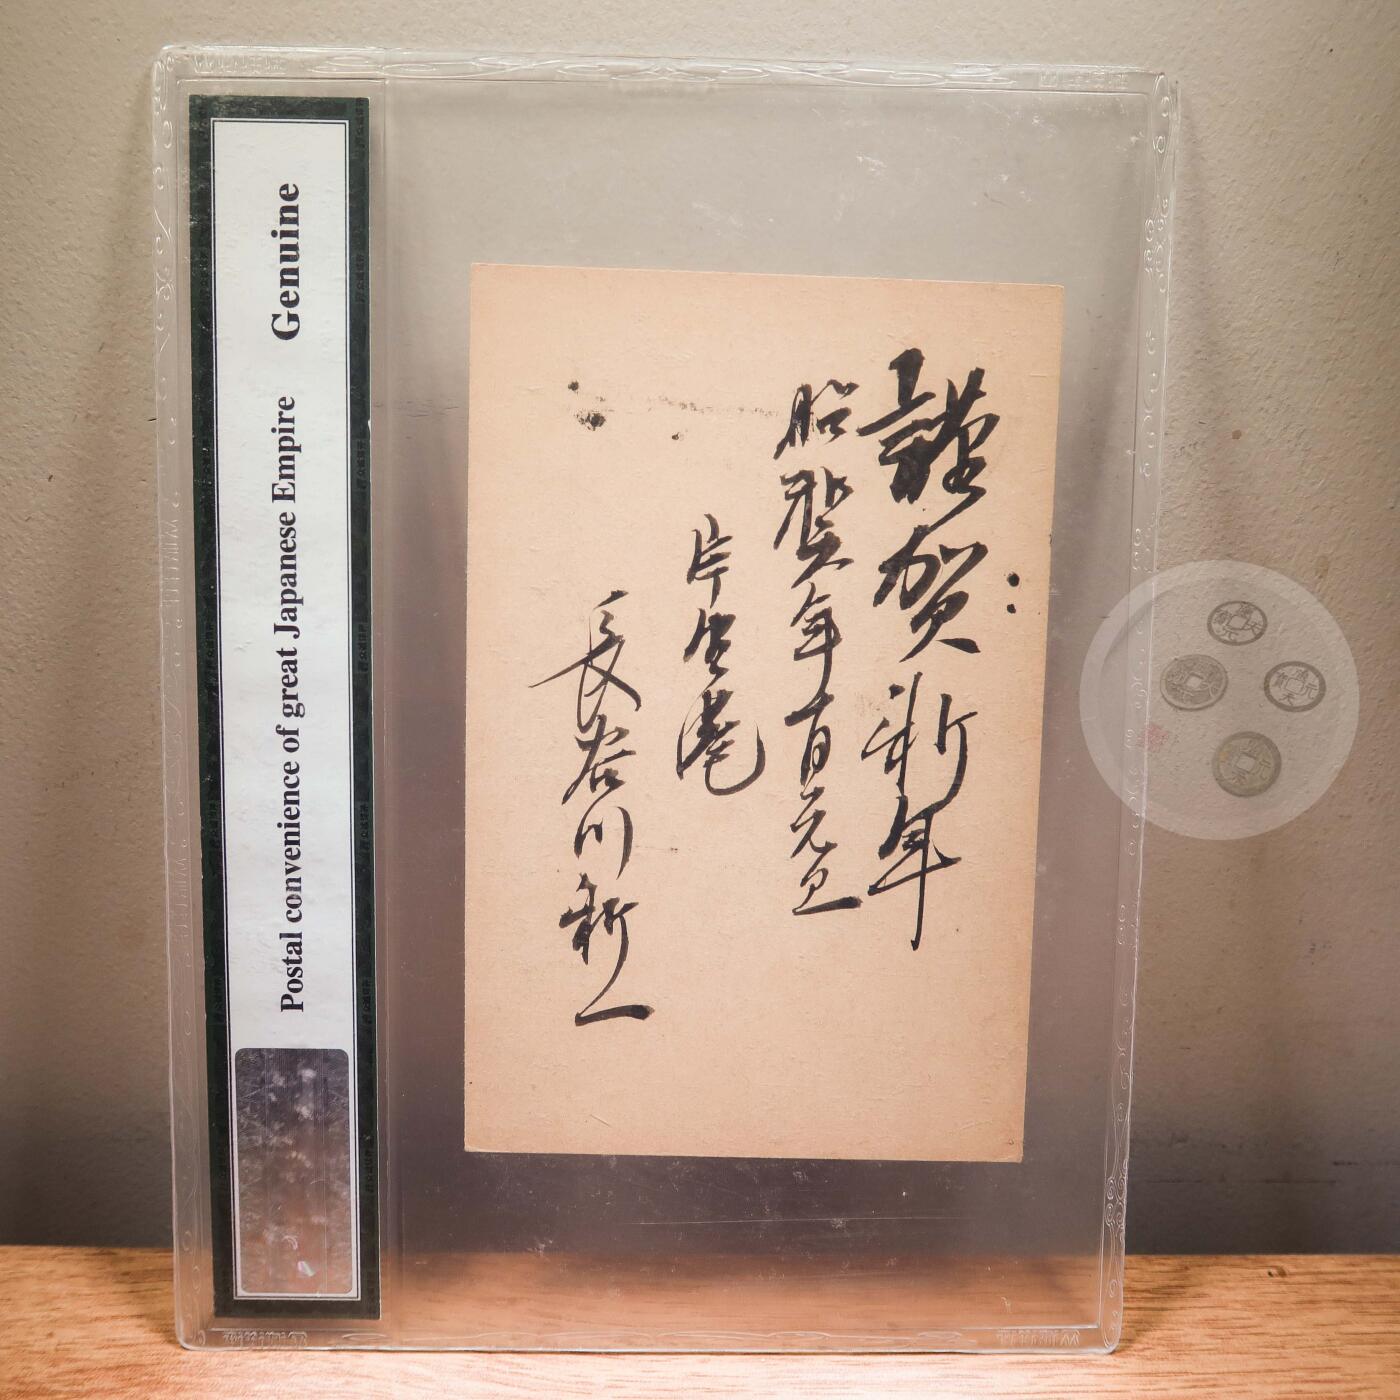 Postal convenience of great Japanese Empire Genuine
謹賀新年
年一月元旦
港
長谷川新一